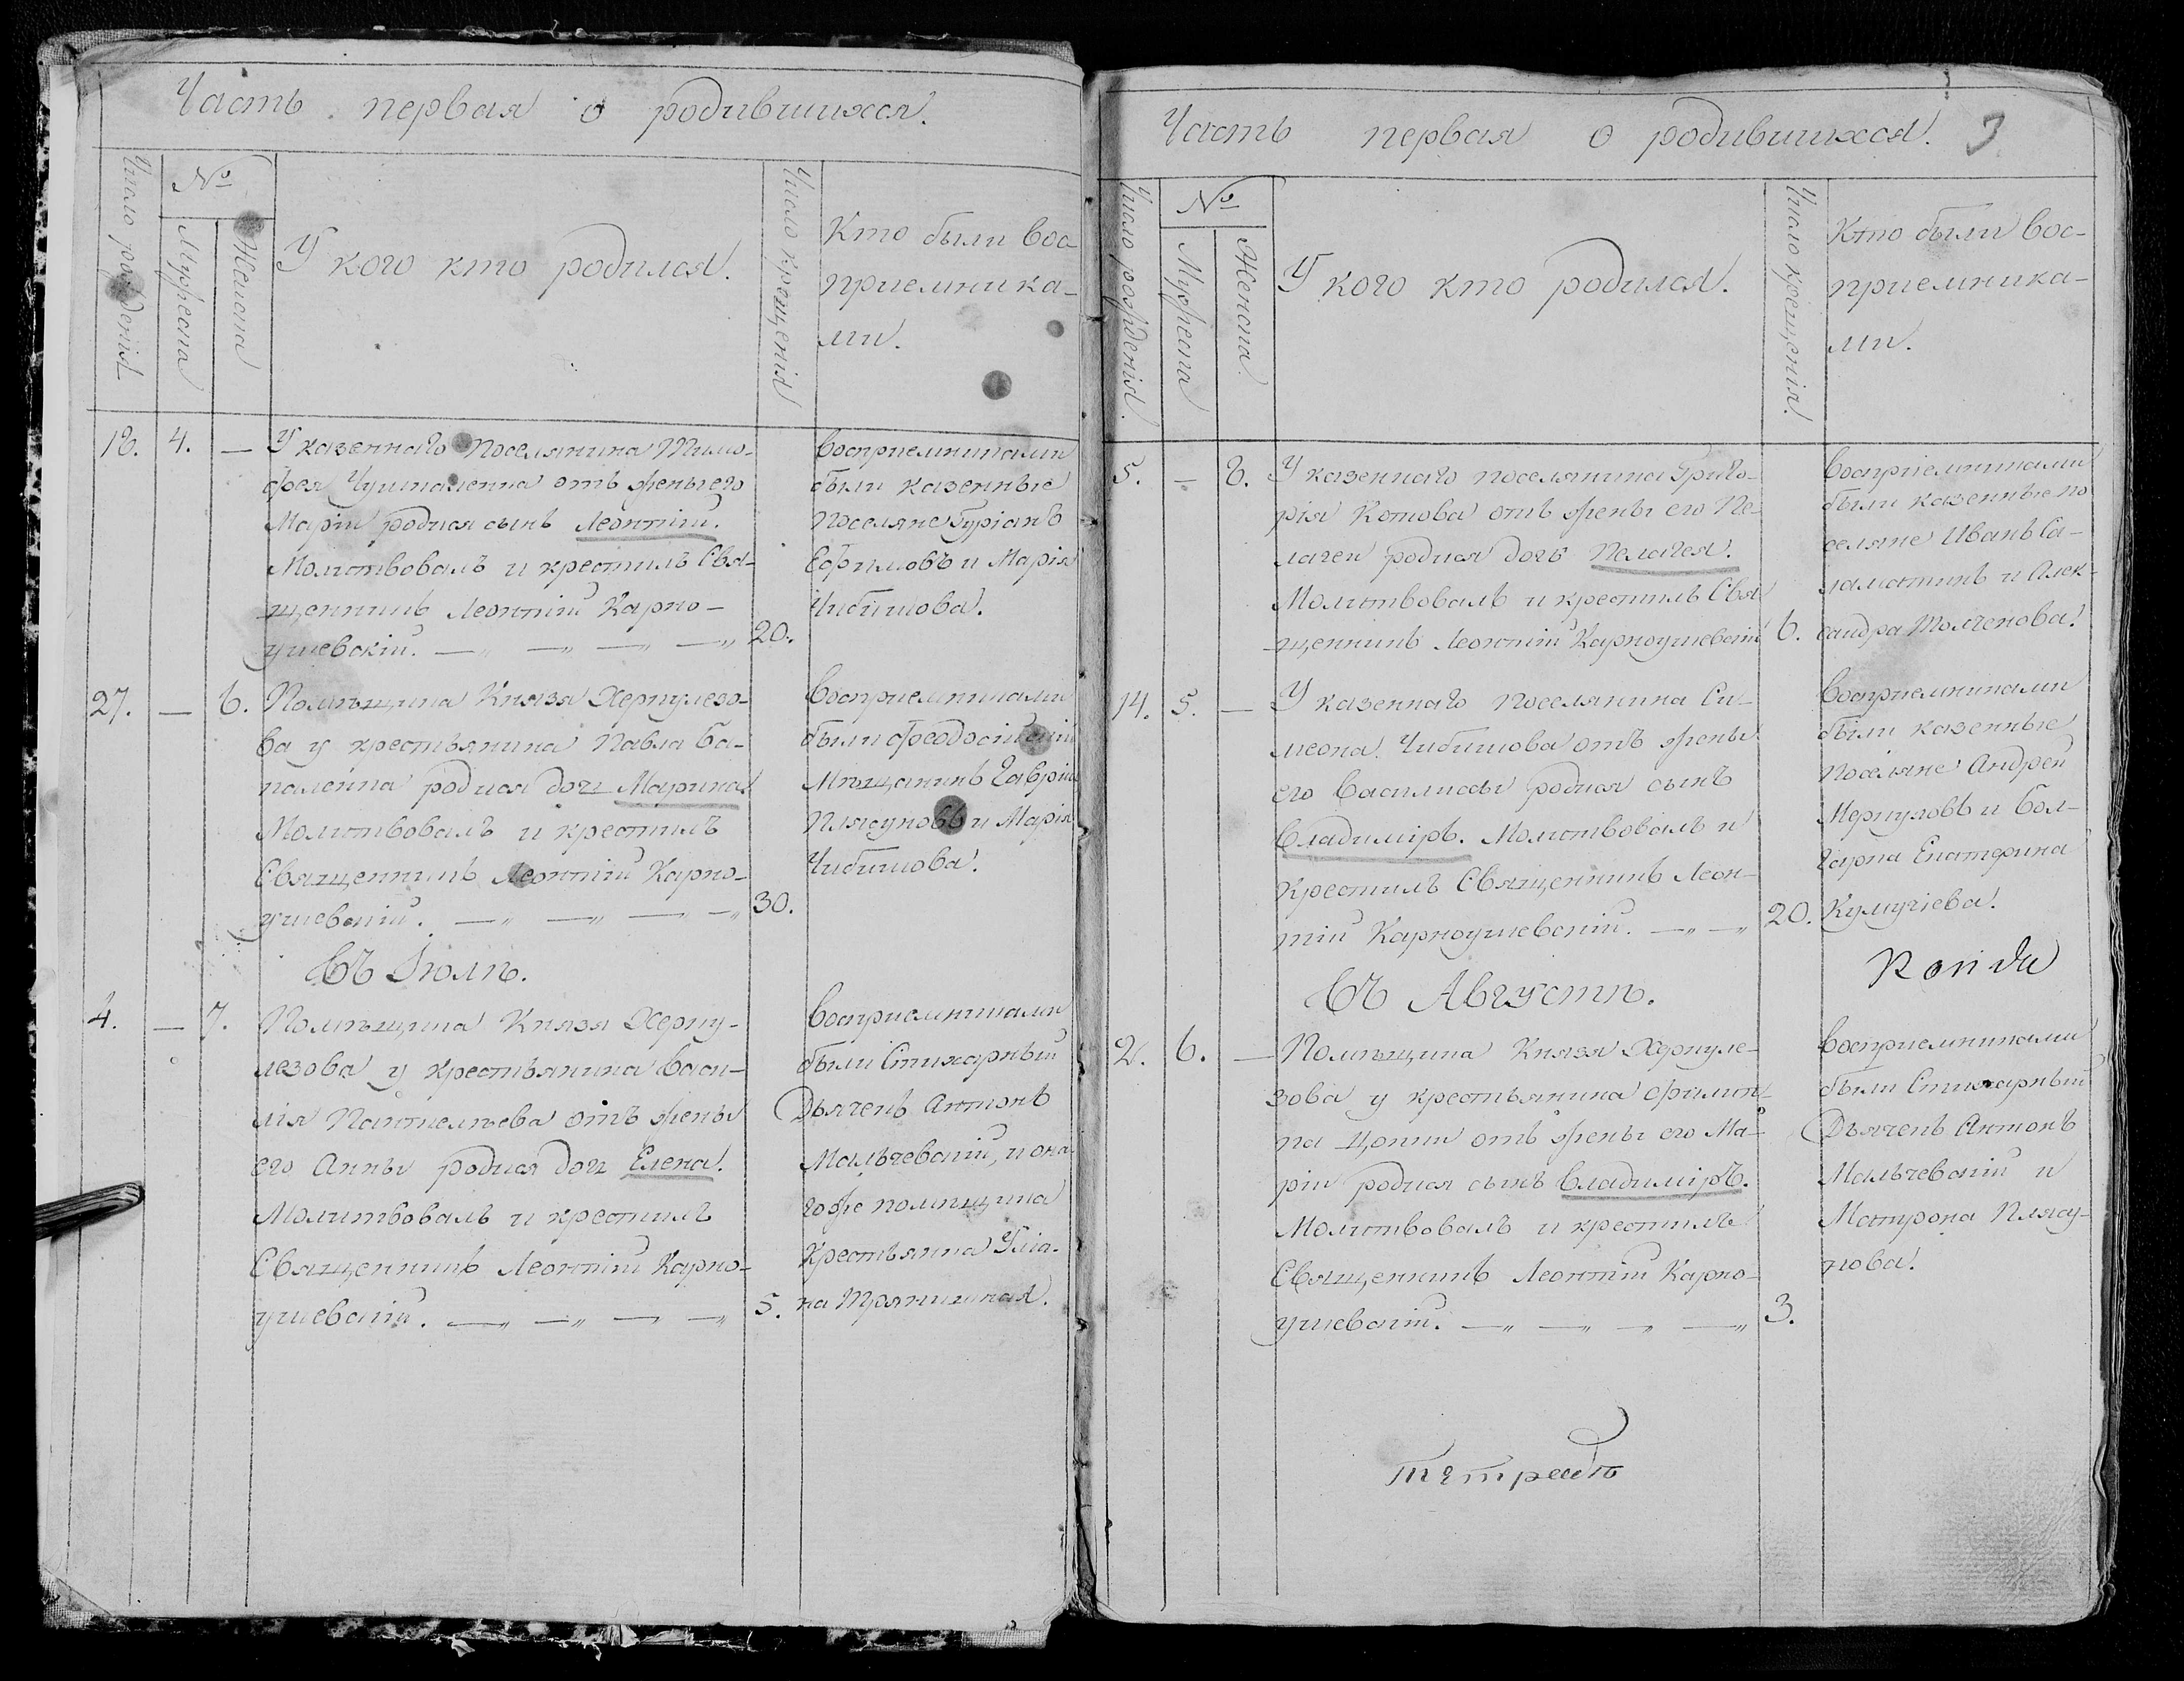 Часть первая о родившихся.
Число рожденія
№
Мужеска
Женска
У кого кто родился.
Число крещенія
Кто были вос-
приемника-
ми.
18. 4. —
У казеннаго поселянина Тимо-
фея Чумаченка отъ жены его
Маріи родися сынъ Леонтій.
Молитвовалъ и крестилъ Свя-
щенникъ Леонтій Карпо-
ушевскій. 20.
Восприемниками
были казенные
поселяне Гуріанъ
Ефимовъ и Марія
Чибишова.
27. — 6.
Помѣщика Князя Херхулезо-
ва у крестьянина Павла Ба-
налейка родися дочь Марина
Молитвовалъ и крестилъ
Священникъ Леонтій Карпо-
ушевскій. 30.
Восприемниками
были феодосійскій
мѣщанинъ Гаврій
Плясуновъ и Марія
Чибишова.
Въ Іюлѣ.
4. — 7.
Помѣщика Князя Херху-
лезова у крестьянина Васи-
лія Пантелѣева отъ жены
его Анны родися дочь Елена.
Молитвовалъ и крестилъ
Священникъ Леонтій Карпо-
ушевскій. 5.
Восприемниками
были Стихарный
Дьячекъ Антонъ
Мальчевскій, и она-
гоже помѣщика
крестьянка Улія-
на
Часть первая о родившихся. 3
Число рожденія.
№
Мужеска
Женска
У кого кто родился.
Число крещенія.
Кто были вос-
приемника-
ми.
5. — 8.
У казеннаго поселянина Григо-
рія Котова отъ жены его Пе-
лагеи родися дочь Пелагея.
Молитвовалъ и крестилъ Свя-
щенникъ Леонтій Карпоушевскій 6.
Воспріемниками
были казенные по
селяне Иванъ Са-
ламатинъ и Алек-
сандра Толченова.
14. 5. —
У казеннаго поселянина Си-
меона Чибишова отъ жены
его Василисы родися сынъ
Владиміръ. Молитвовалъ и
крестилъ Священникъ Леон-
тій Карпоушевскій. 20.
Восприемниками
были казенные
поселяне Андрей
Меркуловъ и Бол-
гарка Екатерина
Кумучіева.
Въ Августѣ.
2. 6. —
Помѣщика Князя Херхуле-
зова у крестьянина Филип-
па Цопки отъ жены его Ма-
ріи родися сынъ Владиміръ.
Молитвовалъ и крестилъ
Священникъ Леонтій Карпо-
ушевскій. 3.
Восприемниками
были Стихарный
Дьячекъ Антонъ
Мальчевскій и
Матрона Плясу-
нова.